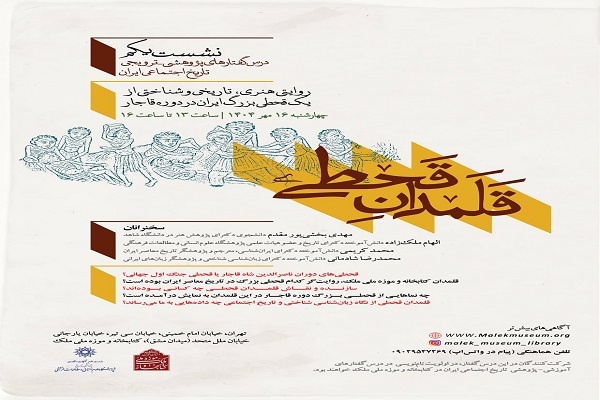 نشست یکم
درس‌گفتارهای پژوهشی_ترویجی
تاریخ اجتماعی ایران
روایتی هنری، تاریخی و شناختی از
یک قحطی بزرگ ایران در دوره قاجار
چهارشنبه ۱۶ مهر ۱۴۰۴ | ساعت ۱۳ تا ساعت ۱۶
قلمدان قحطی
سخنرانان
مهدی بخشی‌پور مقدم دانشجوی دکترای پژوهش هنر در دانشگاه شاهد
الهام ملک‌زاده دانش‌آموخته دکترای تاریخ و عضو هیات علمی پژوهشگاه علوم انسانی و مطالعات فرهنگی
محمد کریمی دانش‌آموخته دکترای ایران‌شناسی، مترجم و پژوهشگر تاریخ معاصر ایران
محمدرضا شادمانی دانش‌آموخته دکترای زبان‌شناسی شناختی و پژوهشگر زبان‌های ایرانی
قحطی‌های دوران ناصرالدین شاه قاجار یا قحطی جنگ اول جهانی؟
قلمدان کتابخانه و موزه ملی ملک، روایت‌گر کدام قحطی بزرگ در تاریخ معاصر ایران بوده است؟
سازنده و نقاش قلمدان قحطی چه کسانی بوده‌اند؟
چه نماهایی از قحطی بزرگ دوره قاجار در این قلمدان به نمایش درآمده است؟
قلمدان قحطی از نگاه زبان‌شناسی شناختی و تاریخ اجتماعی چه داده‌هایی به ما می‌رساند؟
آگاهی‌های بیش‌تر
www.Malekmuseum.org
malek_museum_library
تلفن هماهنگی (پیام در واتس‌اپ) ۰۹۰۳۹۵۳۷۲۶۹
تهران، خیابان امام خمینی، خیابان سی تیر، خیابان یارجانی
خیابان ملل متحد (میدان مشق)، کتابخانه و موزه ملی ملک
شرکت‌کنندگان در این درس‌گفتار، در اولویت نام‌نویسی در درس‌گفتارهای
آموزشی-پژوهشی تاریخ اجتماعی ایران در کتابخانه و موزه ملی ملک خواهند بود.